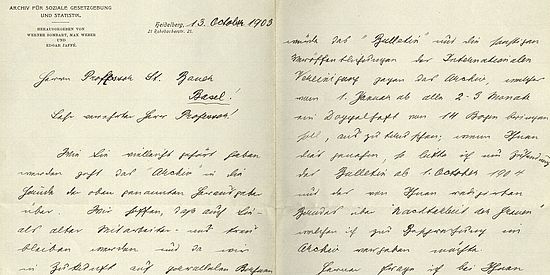 ARCHIV FÜR SOZIALE GESETZGEBUNG
UND STATISTIK.
HERAUSGEGEBEN VON
WERNER SOMBART, MAX WEBER
UND
EDGAR JAFFÉ.
Heidelberg, 13. October 1903
21 Rohrbacherstr. 21.
Herrn Professor St. Bauer
Basel!
Sehr verehrter Herr Professor!
Wie Sie vielleicht gehört haben
werden geht das Archiv in die
Hände der oben genannten Herausgeber
über. Wir hoffen, dass auch Sie
als alter Mitarbeiter uns treu
bleiben werden und da wir
in Zukunft auf parallelen Bahnen
würde das "Bulletin" und die sonstigen
Veröffentlichungen der Internationalen
Vereinigung gegen das Archiv, welches
vom 1. Januar ab alle 2-3 Monate
ein Doppelheft von 14 Bogen bringen
soll, auszutauschen; wenn Ihnen
dies genehm, so bitte ich um Zusendung
des Bulletin ab 1. October 1904
und des von Ihnen redigierten
Bandes über Nachtarbeit der Frauen
welchen ich zur Besprechung im
Archiv vergeben möchte.
Ferner frage ich bei Ihnen